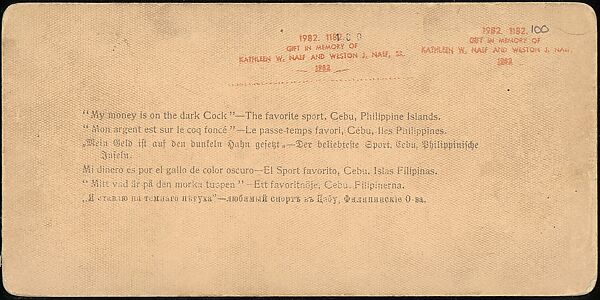 1982. 1182.
GIFT IN MEMORY OF
KATHLEEN W. NAEF AND WESTON J. NAEF, SR.
1982
1982. 1182. 100
GIFT IN MEMORY OF
KATHLEEN W. NAEF AND WESTON J. NAEF,
1982
“My money is on the dark Cock”—The favorite sport, Cebu, Philippine Islands.
“Mon argent est sur le coq foncé”—Le passe-temps favori, Cébu, Iles Philippines.
„Mein Geld ist auf den dunkeln Hahn gesetzt„—Der beliebteste Sport, Cebu, Philippinische
Inseln.
Mi dinero es por el gallo de color oscuro—El Sport favorito, Cebu, Islas Filipinas.
“Mitt vad är på den morka tuppen”—Ett favoritnöje, Cebu, Filipinerna.
„Я ставлю на темнаго пѣтуха”—любимый спортъ въ Цебу, Филипинскіе О-ва.